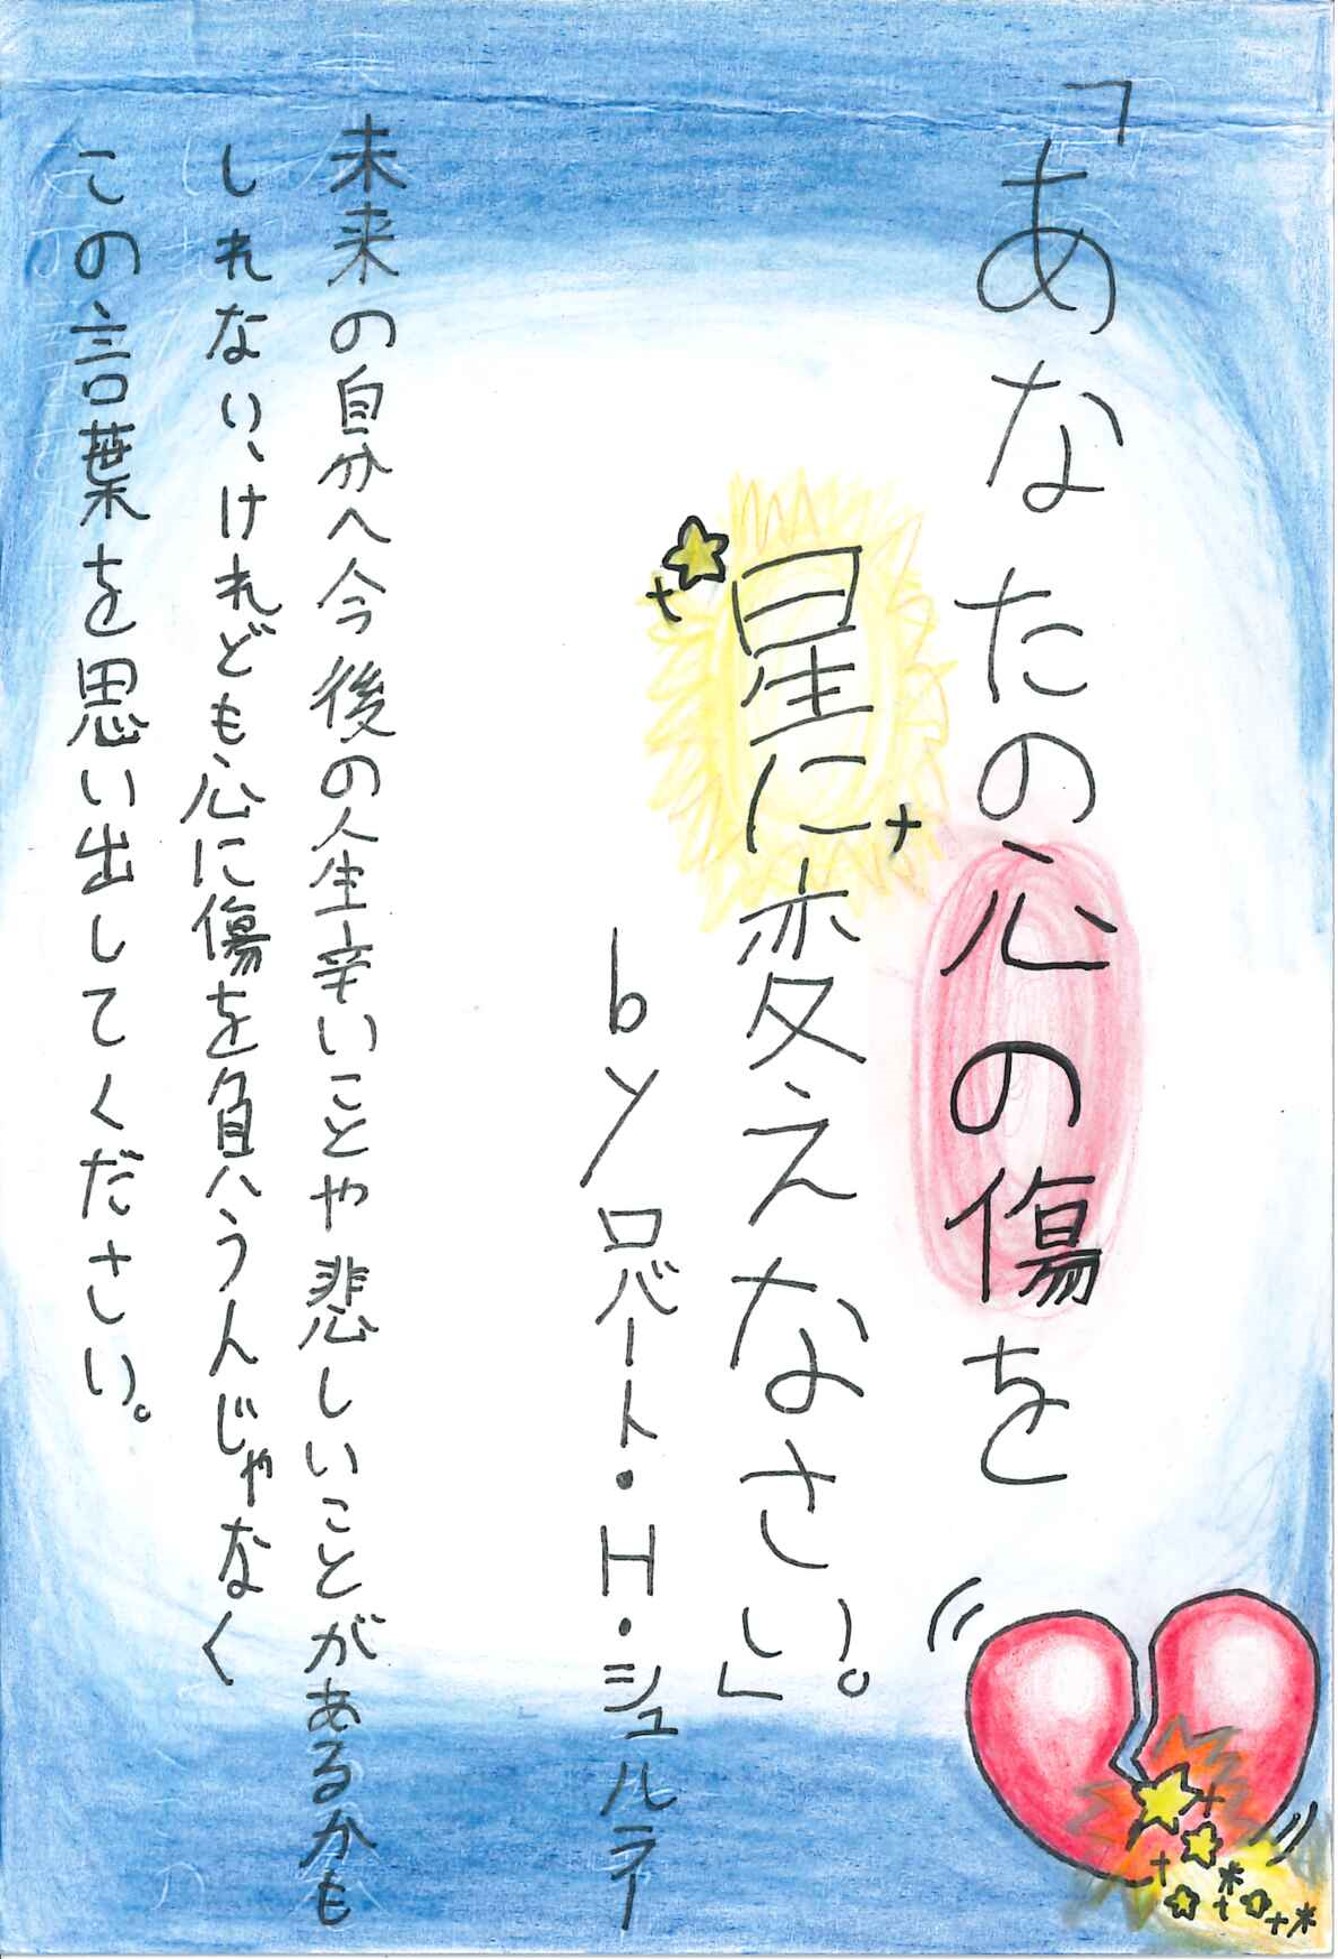 「あなたの心の傷を
星に変えなさい。」
by ロバート・H・シュルラー
未来の自分へ今後の人生辛いことや悲しいことがあるかも
しれない、けれども心に傷を負うんじゃなく
この言葉を思い出してください。